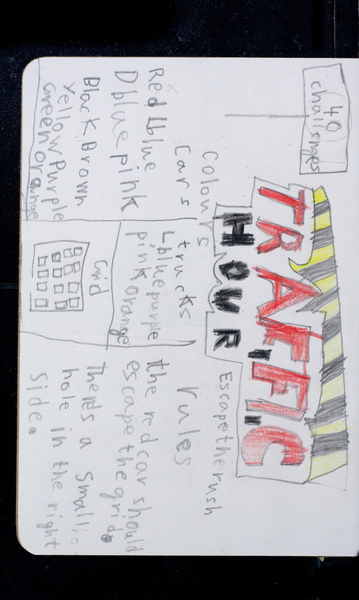 40
challenges
TRAFFIC
HOUR
Escape the rush
Colours
Cars
Red Lblue
Dblue pink
Black Brown
Yellow Purple
Green Orange
trucks
Lblue purple
pink orange
Grid
rules
the red car should
escape the grid.
There's a Small
hole in the right
Side.